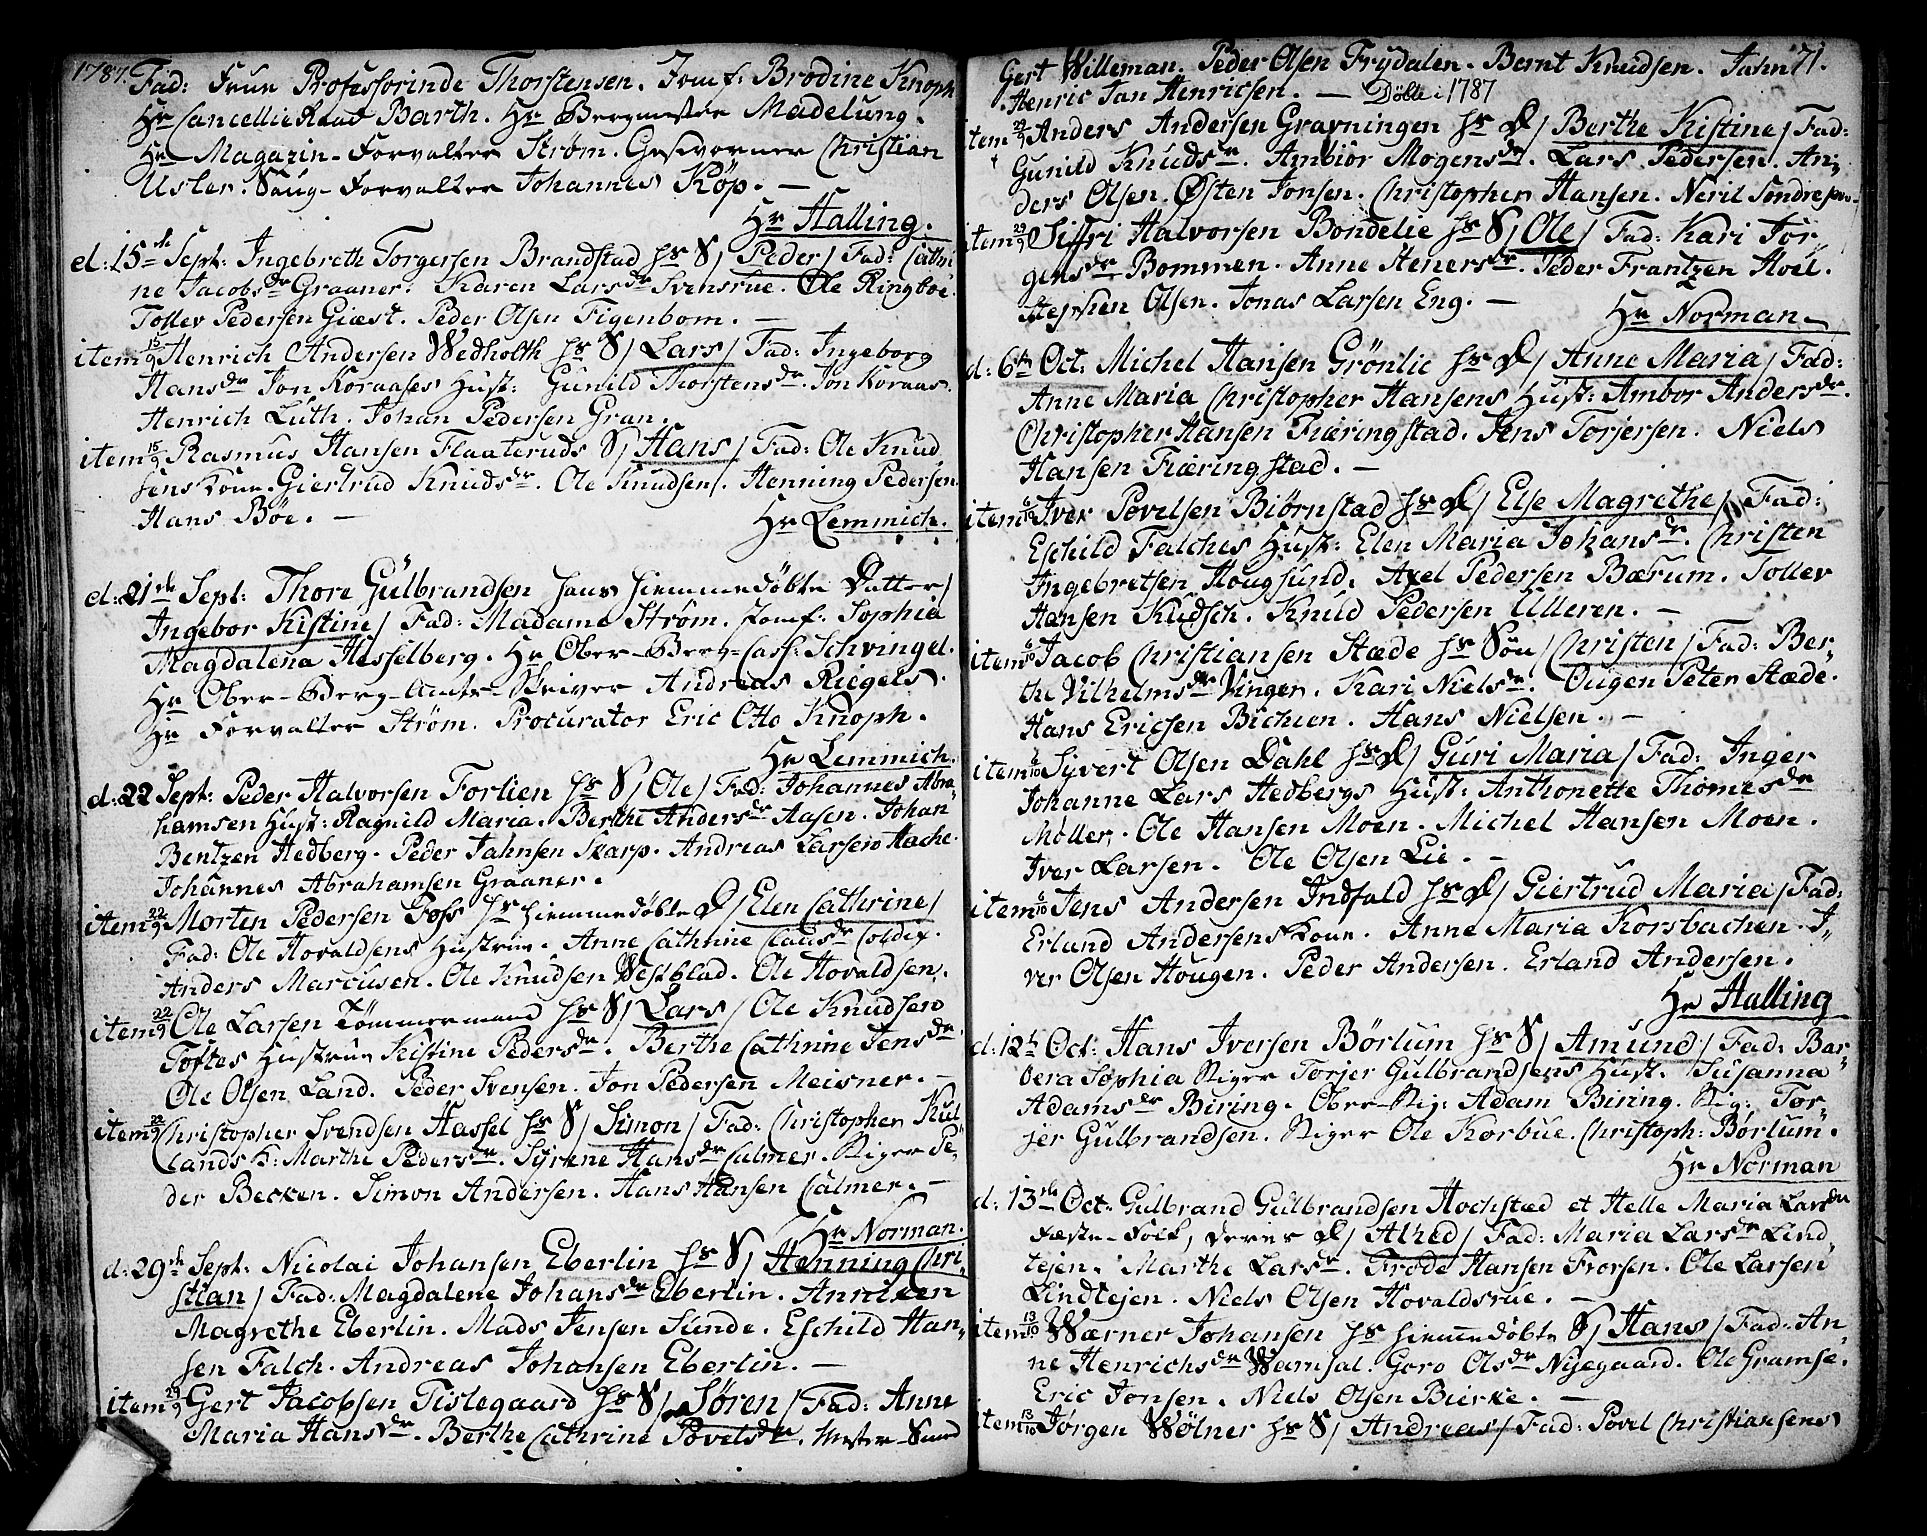 1787. Fad: Frue Professorinde Thorstensen. Jomf: Brodine Knoph
Hr Cancellie Raad Barth. Hr Bergmester Madelung.
Hr Magazin-Forvalter Strøm. Gesworner Christian
Usler. Saug-Forvalter Johannes Köp. —
Hr Halling.
d: 15de Sept: Ingebreth Torgersen Brandstad hs S/ Peder/ Fad: Cathri
ne Jacobsdr Graaner. Karen Larsdr Svensrue. Ole Ringboe
Tollev Pedersen Giæst. Peder Olsen Figenbom. —
item 15/9 Henrich Andersen Wedholth hs S/ Lars/ Fad: Ingeborg
Hansdr Jon Koraases Hust: Gunild Thorstensdr. Jon Koraas.
Henrich Luth. Johan Pedersen Gran.
item 15/9 Rasmus Hansen Flaateruds S/ Hans/ Fad: Ole Knud
sens Kone Giertrud Knudsdr. Ole Knudsen. Henning Pedersen
Hans Böe. —
Hr Lemmich.
d: 21de Sept: Thore Gulbrandsen hans hiemmedöbte Datter/
Ingebor Kistine/ Fad: Madame Ström. Jomf: Sophia
Magdalena Hesselberg. Hr Ober-Berg-Cass: Schvingel.
Hr Ober-Berg-Amts-Skriver Andreas Riegels.
Hr Forvalter Ström. Procurator Eric Otto Knoph.
Hr Lemmich.
d: 22 Sept: Peder Halvorsen Forlien hs S/ Ole/ Fad: Johannes Abra
hamsen Hust: Ragnild Maria. Berthe Andersdr Aasen. Johan
Bentzen Hedberg. Peder Jahnsen Skarp. Andreas Larsen Hache
Johannes Abrahamsen Graaner.
item 22/9 Morten Pedersen Foss hs hiemmedöbte D/ Elen Cathrine/
Fad: Ole Hovaldsens Hustrue. Anne Cathrine Clausdr Coldix.
Anders Marcusen. Ole Knudsen Westblad. Ole Hovaldsen.
item 22/9 Ole Larsen Tömmermand hs S/ Lars/ Ole Knudsen
Toftes Hustrue Kistine Pedersdr. Berthe Cathrine Jensdr
Ole Olsen Land. Peder Svensen. Jon Pedersen Meisner. —
item 22/9 Christopher Svendsen Hassel hs S/ Simon/ Fad: Christopher Kul
lands K: Marthe Pedersdr. Syrene Hansdr Calmer. Stiger Pe
der Becken. Simon Andersen. Hans Hansen Calmer. —
Hr Norman.
d: 29de Sept: Nicolai Johansen Eberlin hs S/ Henning Chri
stian/ Fad: Magdalene Johansdr Eberlin. Anniken
Magrethe Eberlin. Mads Jensen Sunde. Eschild Han
sen Falch. Andreas Johansen Eberlin. —
item 29/9 Gert Jacobsen Tislegaard hs S/ Sören/ Fad: Anne
Maria Hansdr. Berthe Cathrine Povelsdr.
Gert Willeman. Peder Olsen Frydalen. Bernt Knudsen. Jahn 71.
Henric Jan Henricsen. — Döbte 1787
item 29/9 Anders Andersen Gravningen hs D/ Berthe Kistine/ Fad:
Gunild Knudsdr. Ambiör Mogensdr. Lars Pedersen. An
ders Olsen. Østen Jonsen. Christopher Hansen. Neril Sondresen
item 29/9 Siffri Halvorsen Bondelie hs S/ Ole/ Fad: Kari Jör
gensdr Bommen. Anne Stenersdr. Peder Frantzen Hoel.
Stephen Olsen. Jonas Larsen Eng. —
Hr Norman.
d: 6te Oct: Michel Hansen Grönlie hs D/ Anne Maria/ Fad:
Anne Maria Christopher Hansens Hust: Ambor Andersdr.
Christopher Hansen Fiæringstad. Jens Torjersen. Niels
Hansen Fiæringstad. —
item 6/10 Iver Povelsen Biörnstad hs D/ Else Magrethe/ Fad:
Eschild Falches Hust: Elen Maria Johansdr. Christen
Ingebretsen Hougsund. Axel Pedersen Bærum. Tollev
Hansen Kudsch. Knud Pedersen Ulleren. —
item 6/10 Jacob Christiansen Stæde hs Sön/ Christen/ Fad: Ber
the Vilhelmsdr Vinger. Kari Nielsdr. Ougen Peter Stæde.
Hans Ericsen Bichien. Hans Nielsen. —
item 6/10 Syvert Olsen Dahl hs D/ Guri Maria/ Fad: Inger
Johanne Lars Hedbergs Hust: Anthonette Thomesdr
Möller. Ole Hansen Moen. Michel Hansen Moen.
Iver Larsen. Ole Olsen Lie. —
item 6/10 Jens Andersen Indfald hs D/ Giertrud Maria/ Fad:
Erland Andersens Kone. Anne Maria Korsbachen. I
ver Olsen Hougen. Peder Andersen. Erland Andersen.
Hr Halling
d: 12t Oct: Hans Iversen Börlum hs S/ Amund/ Fad: Bar
bera Sophia Stiger Torjer Gulbrandsens Hust. Susanna
Adamsdr Biring. Ober-Stig: Adam Biring. Stig: Tor
jer Gulbrandsen. Stiger Ole Korbue. Christoph: Börlum.
Hr Norman
d: 13de Oct: Gulbrand Gulbrandsen Hochstad et Helle Maria Larsdr
Fæste-Folk, deres D/ Alhed/ Fad: Maria Larsdr Lind
tejen. Marthe Larsdr. Frode Hansen Frorsen. Ole Larsen
Lindtejen. Niels Olsen Hovaldsrue. —
item 13/10 Wærner Johansen hs hiemmedöbte S/ Hans/ Fad: An
ne Henrichsdr Wamsal. Goro Olsdr Nysegaard. Ole Gramse.
Eric Jonsen. Niels Olsen Bierke. —
item 13/10 Jörgen Wölner hs S/ Andreas/ Fad: Povel Christiansens